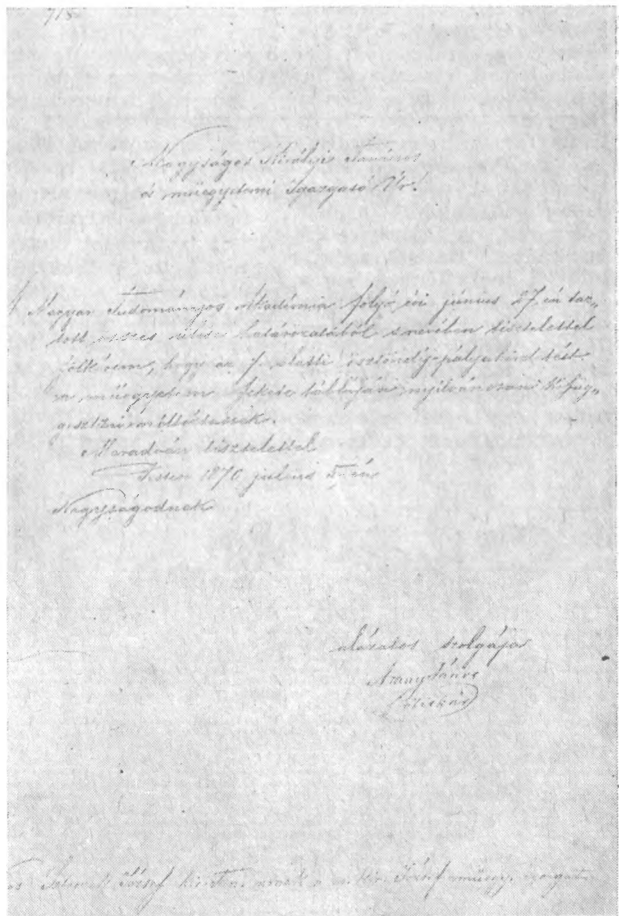 718
Nagyságos Királyi Tanácsos
és műegyetemi Igazgató Úr!
A Magyar Tudományos Akadémia folyó évi június 27-én tar-
tott összes ülése határozatából s nevében tisztelettel
, hogy az /. alatti ösztöndíj-pályahirdetést
a műegyetem fekete tábláján nyilvánosan kifüg-
gesztetni méltóztassék.
Maradván tisztelettel
Pesten 1870 július 5-én
Nagyságodnak
alázatos szolgája
Arany János
titkár
József műegy. igazgató